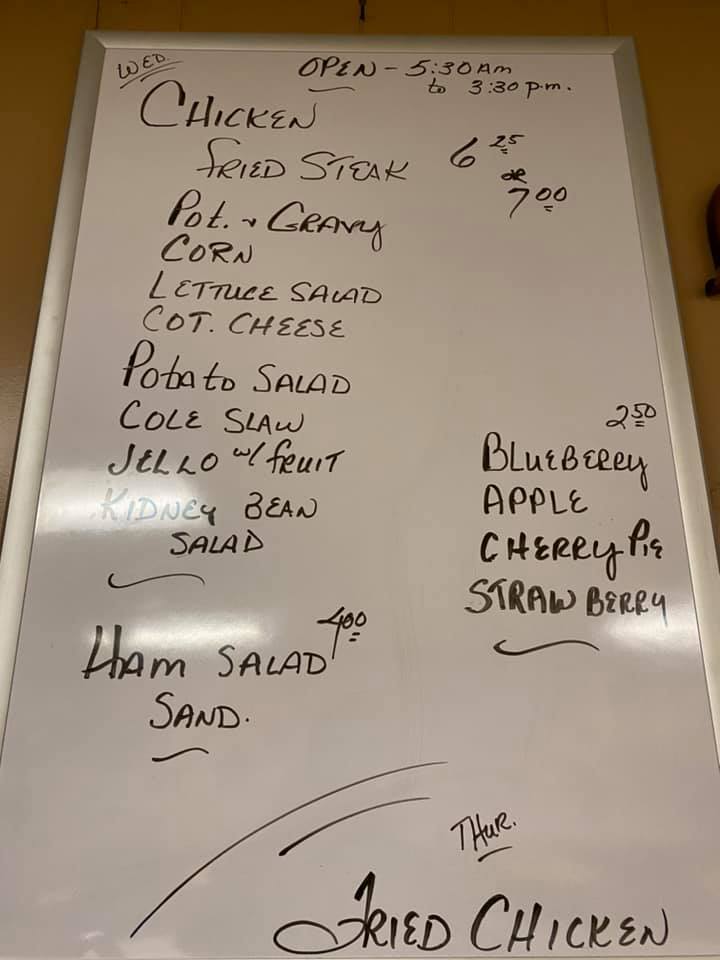 WED.
OPEN - 5:30 Am
to 3:30 p.m.
CHICKEN
FRIED STEAK 6 25
or
7 00
Pot. & GRAVY
CORN
LETTUCE SALAD
COT. CHEESE
Potato SALAD
COLE SLAW
JELLO w/ fRUIT
KIDNEY BEAN
SALAD
2 50
BLUEBERRY
APPLE
CHERRY PIE
STRAWBERRY
4 00
HAM SALAD
SAND.
THUR.
FRIED CHICKEN